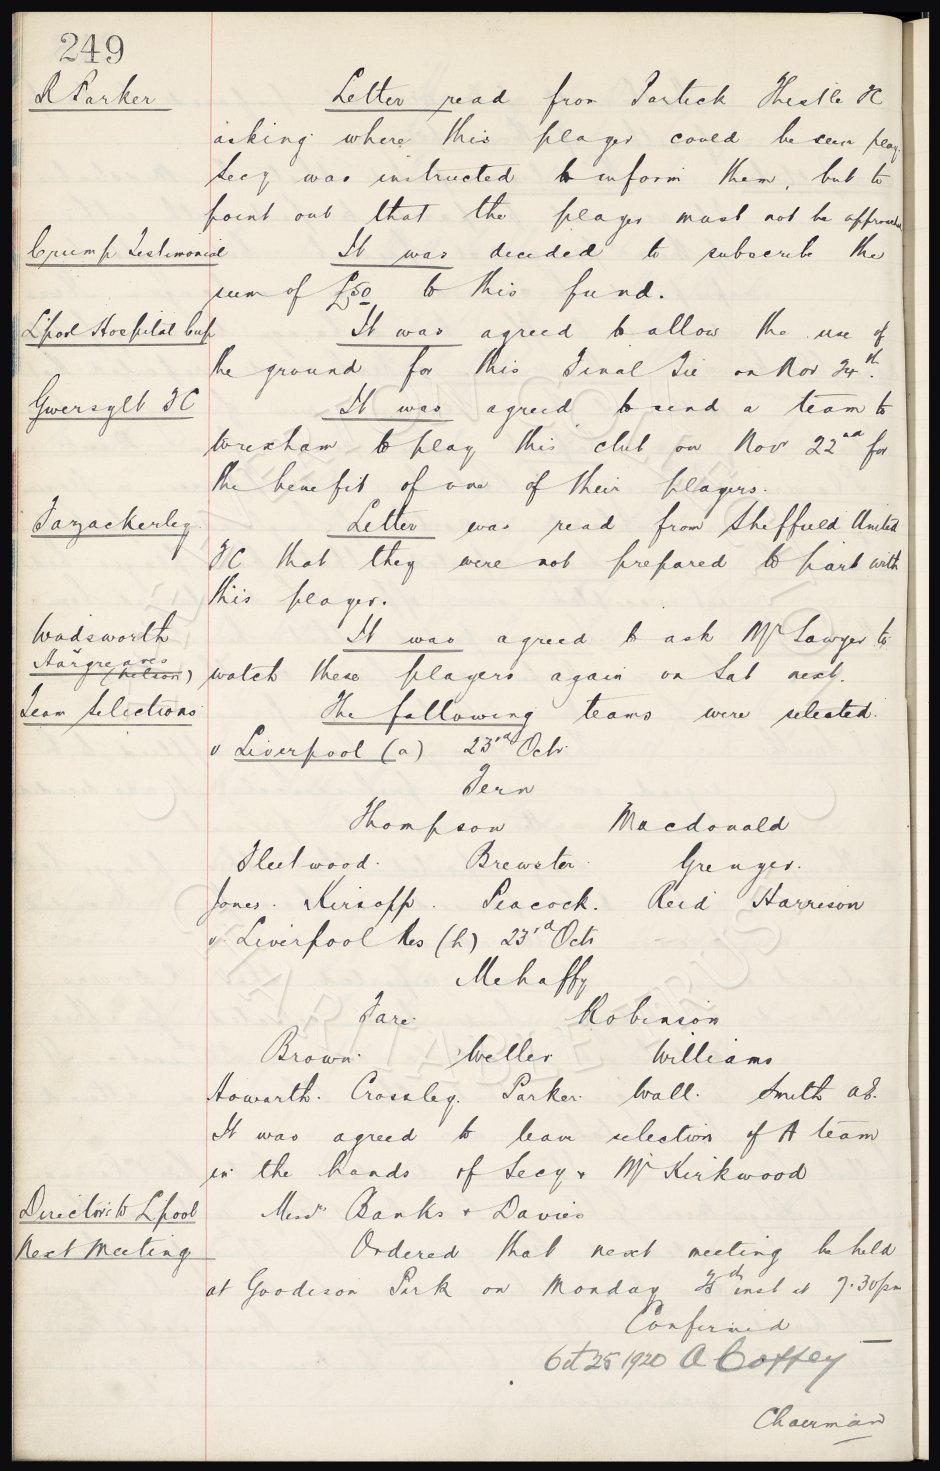 249
R Parker
Letter read from Partick Thistle FC
asking where this player could be seen play.
Secy was instructed to inform them, but to
point out that the player must not be approached
Crump Testimonial
It was decided to subscribe the
sum of £50 to this fund.
L'pool Hospital Cup
It was agreed to allow the use of
the ground for this Final Tie on Nov 24th.
Gwersyllt FC
It was agreed to send a team to
Wrexham to play this club on Nov 22nd for
the benefit of one of their players.
Fazackerley
Letter was read from Sheffield United
FC that they were not prepared to part with
this player.
Wadsworth
Hargreaves
(Nelson)
It was agreed to ask Mr Sawyer to
watch these players again on Sat next.
Team Selections
The following teams were selected.
v Liverpool (a) 23rd Octr
Fern
Thompson Macdonald
Fleetwood. Brewster. Grenyer.
Jones. Kirsopp. Peacock. Reid Harrison
v Liverpool Res (h) 23rd Octr
Mehaffy
Fare. Robinson
Brown. Weller Williams
Howarth. Crossley. Parker. Wall. Smith AE.
It was agreed to leave selection of A team
in the hands of Secy & Mr Kirkwood
Directors to L'pool
Messrs Banks & Davies
Next Meeting
Ordered that next meeting be held
at Goodison Park on Monday 25th inst at 7.30pm
Confirmed
Oct 25 1920 A Coffey
Chairman